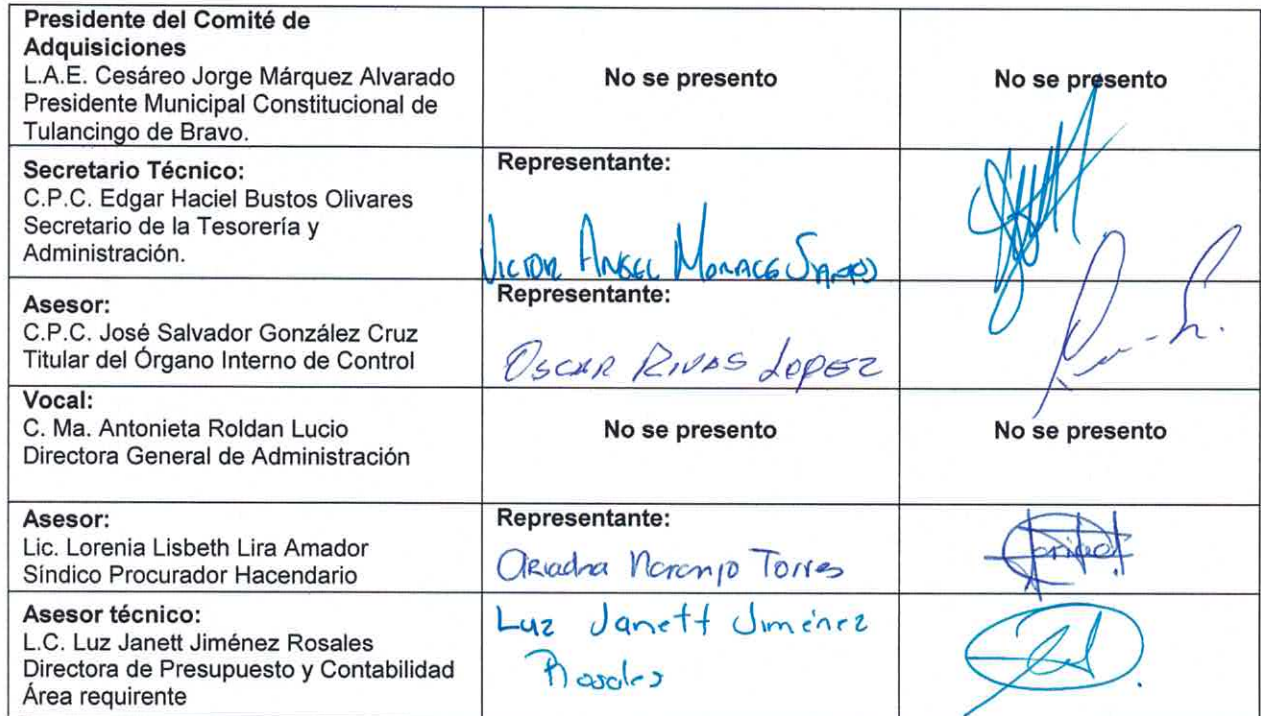 Presidente del Comité de
Adquisiciones
L.A.E. Cesáreo Jorge Márquez Alvarado
Presidente Municipal Constitucional de
Tulancingo de Bravo.
No se presento
No se presento
Secretario Técnico:
C.P.C. Edgar Haciel Bustos Olivares
Secretario de la Tesorería y
Administración.
Representante:
Victor Angel
Asesor:
C.P.C. José Salvador González Cruz
Titular del Órgano Interno de Control
Representante:
Oscar Rivas Lopez
Vocal:
C. Ma. Antonieta Roldan Lucio
Directora General de Administración
No se presento
No se presento
Asesor:
Lic. Lorenia Lisbeth Lira Amador
Síndico Procurador Hacendario
Representante:
Ariadna Naranjo Torres
Asesor técnico:
L.C. Luz Janett Jiménez Rosales
Directora de Presupuesto y Contabilidad
Área requirente
Luz Janett Jiménez
Rosales